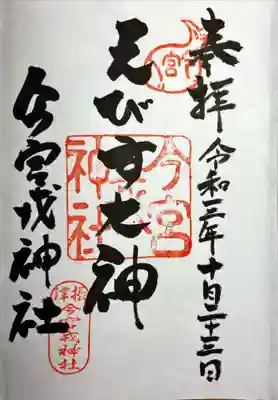 奉拝
令和三年十月二十三日
えびす大神
今宮戎神社
宮
今宮
神社
摂津
今宮戎神社